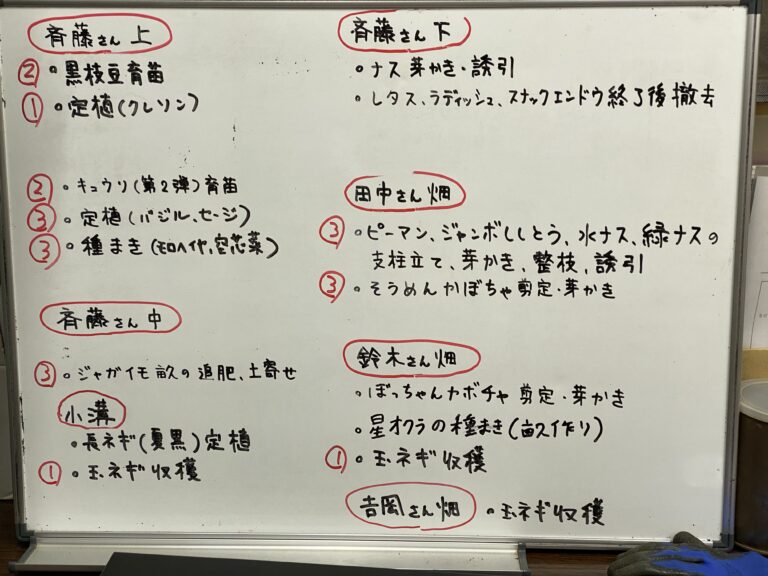 斉藤さん 上
② 。黒枝豆育苗
① 。定植(クレソン)
② 。キュウリ(第2弾)育苗
③ 。定植(バジル、セージ)
③ 。種まき(モロヘイヤ、空芯菜)
斉藤さん 中
③ 。ジャガイモ畝の追肥、土寄せ
小溝
。長ネギ(夏黒)定植
① 。玉ネギ収穫
斉藤さん 下
。ナス芽かき・誘引
。レタス、ラディッシュ、スナックエンドウ終了後撤去
田中さん畑
③ 。ピーマン、ジャンボししとう、水ナス、緑ナスの
支柱立て、芽かき、整枝、誘引
③ 。そうめんかぼちゃ剪定・芽かき
鈴木さん畑
。ぼっちゃんカボチャ剪定・芽かき
。星オクラの種まき(畝作り)
① 。玉ネギ収穫
吉岡さん畑 。玉ネギ収穫